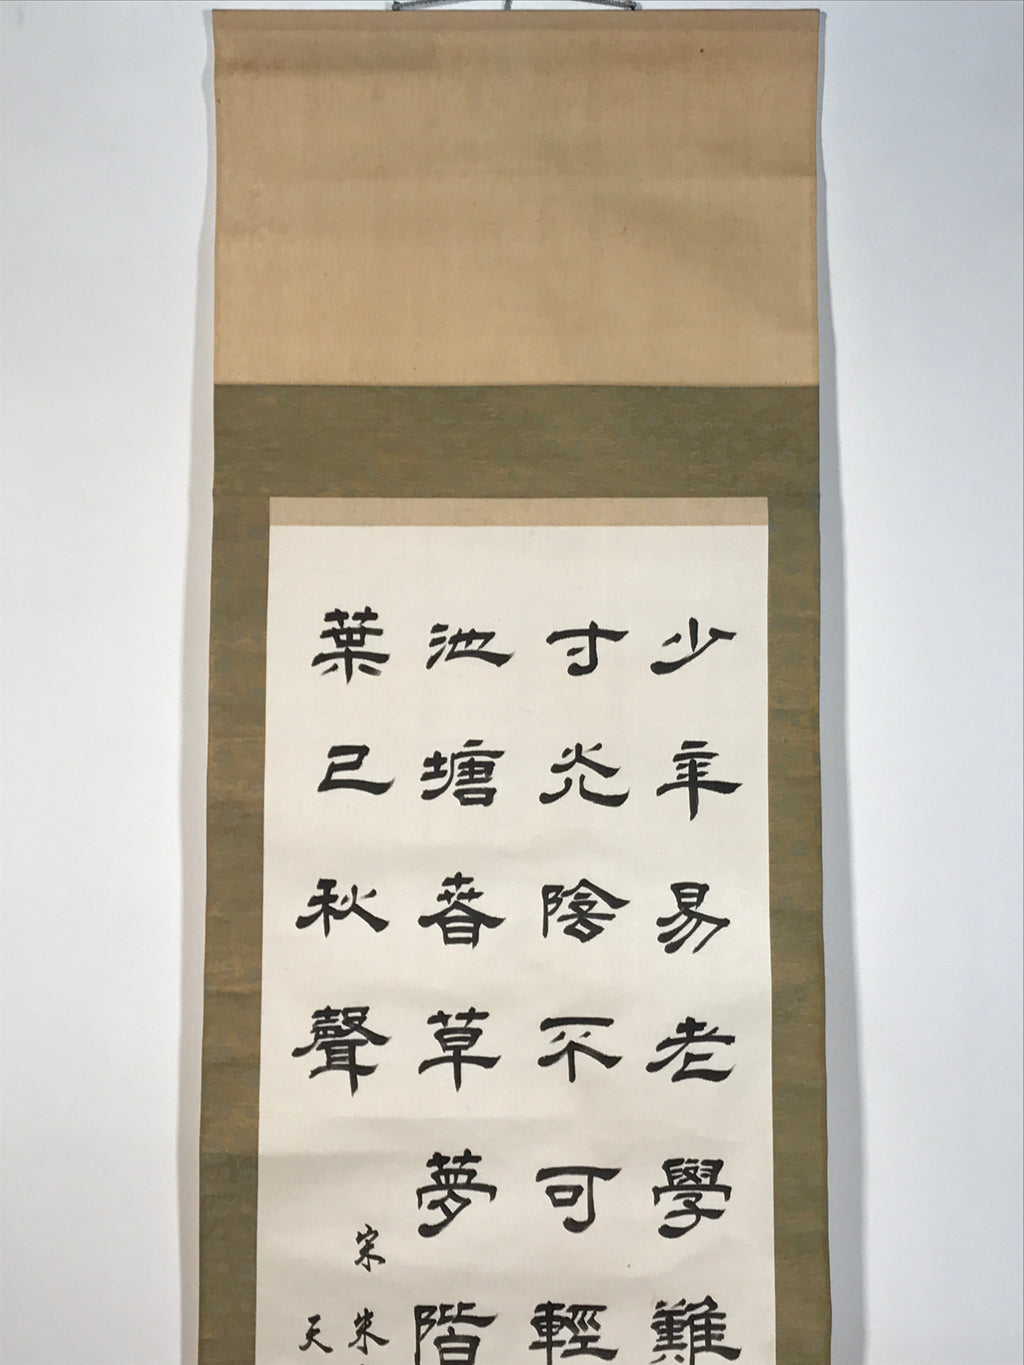 少年易老學難
寸光陰不可輕
池塘春草夢階
葉已秋聲
宋朱
天